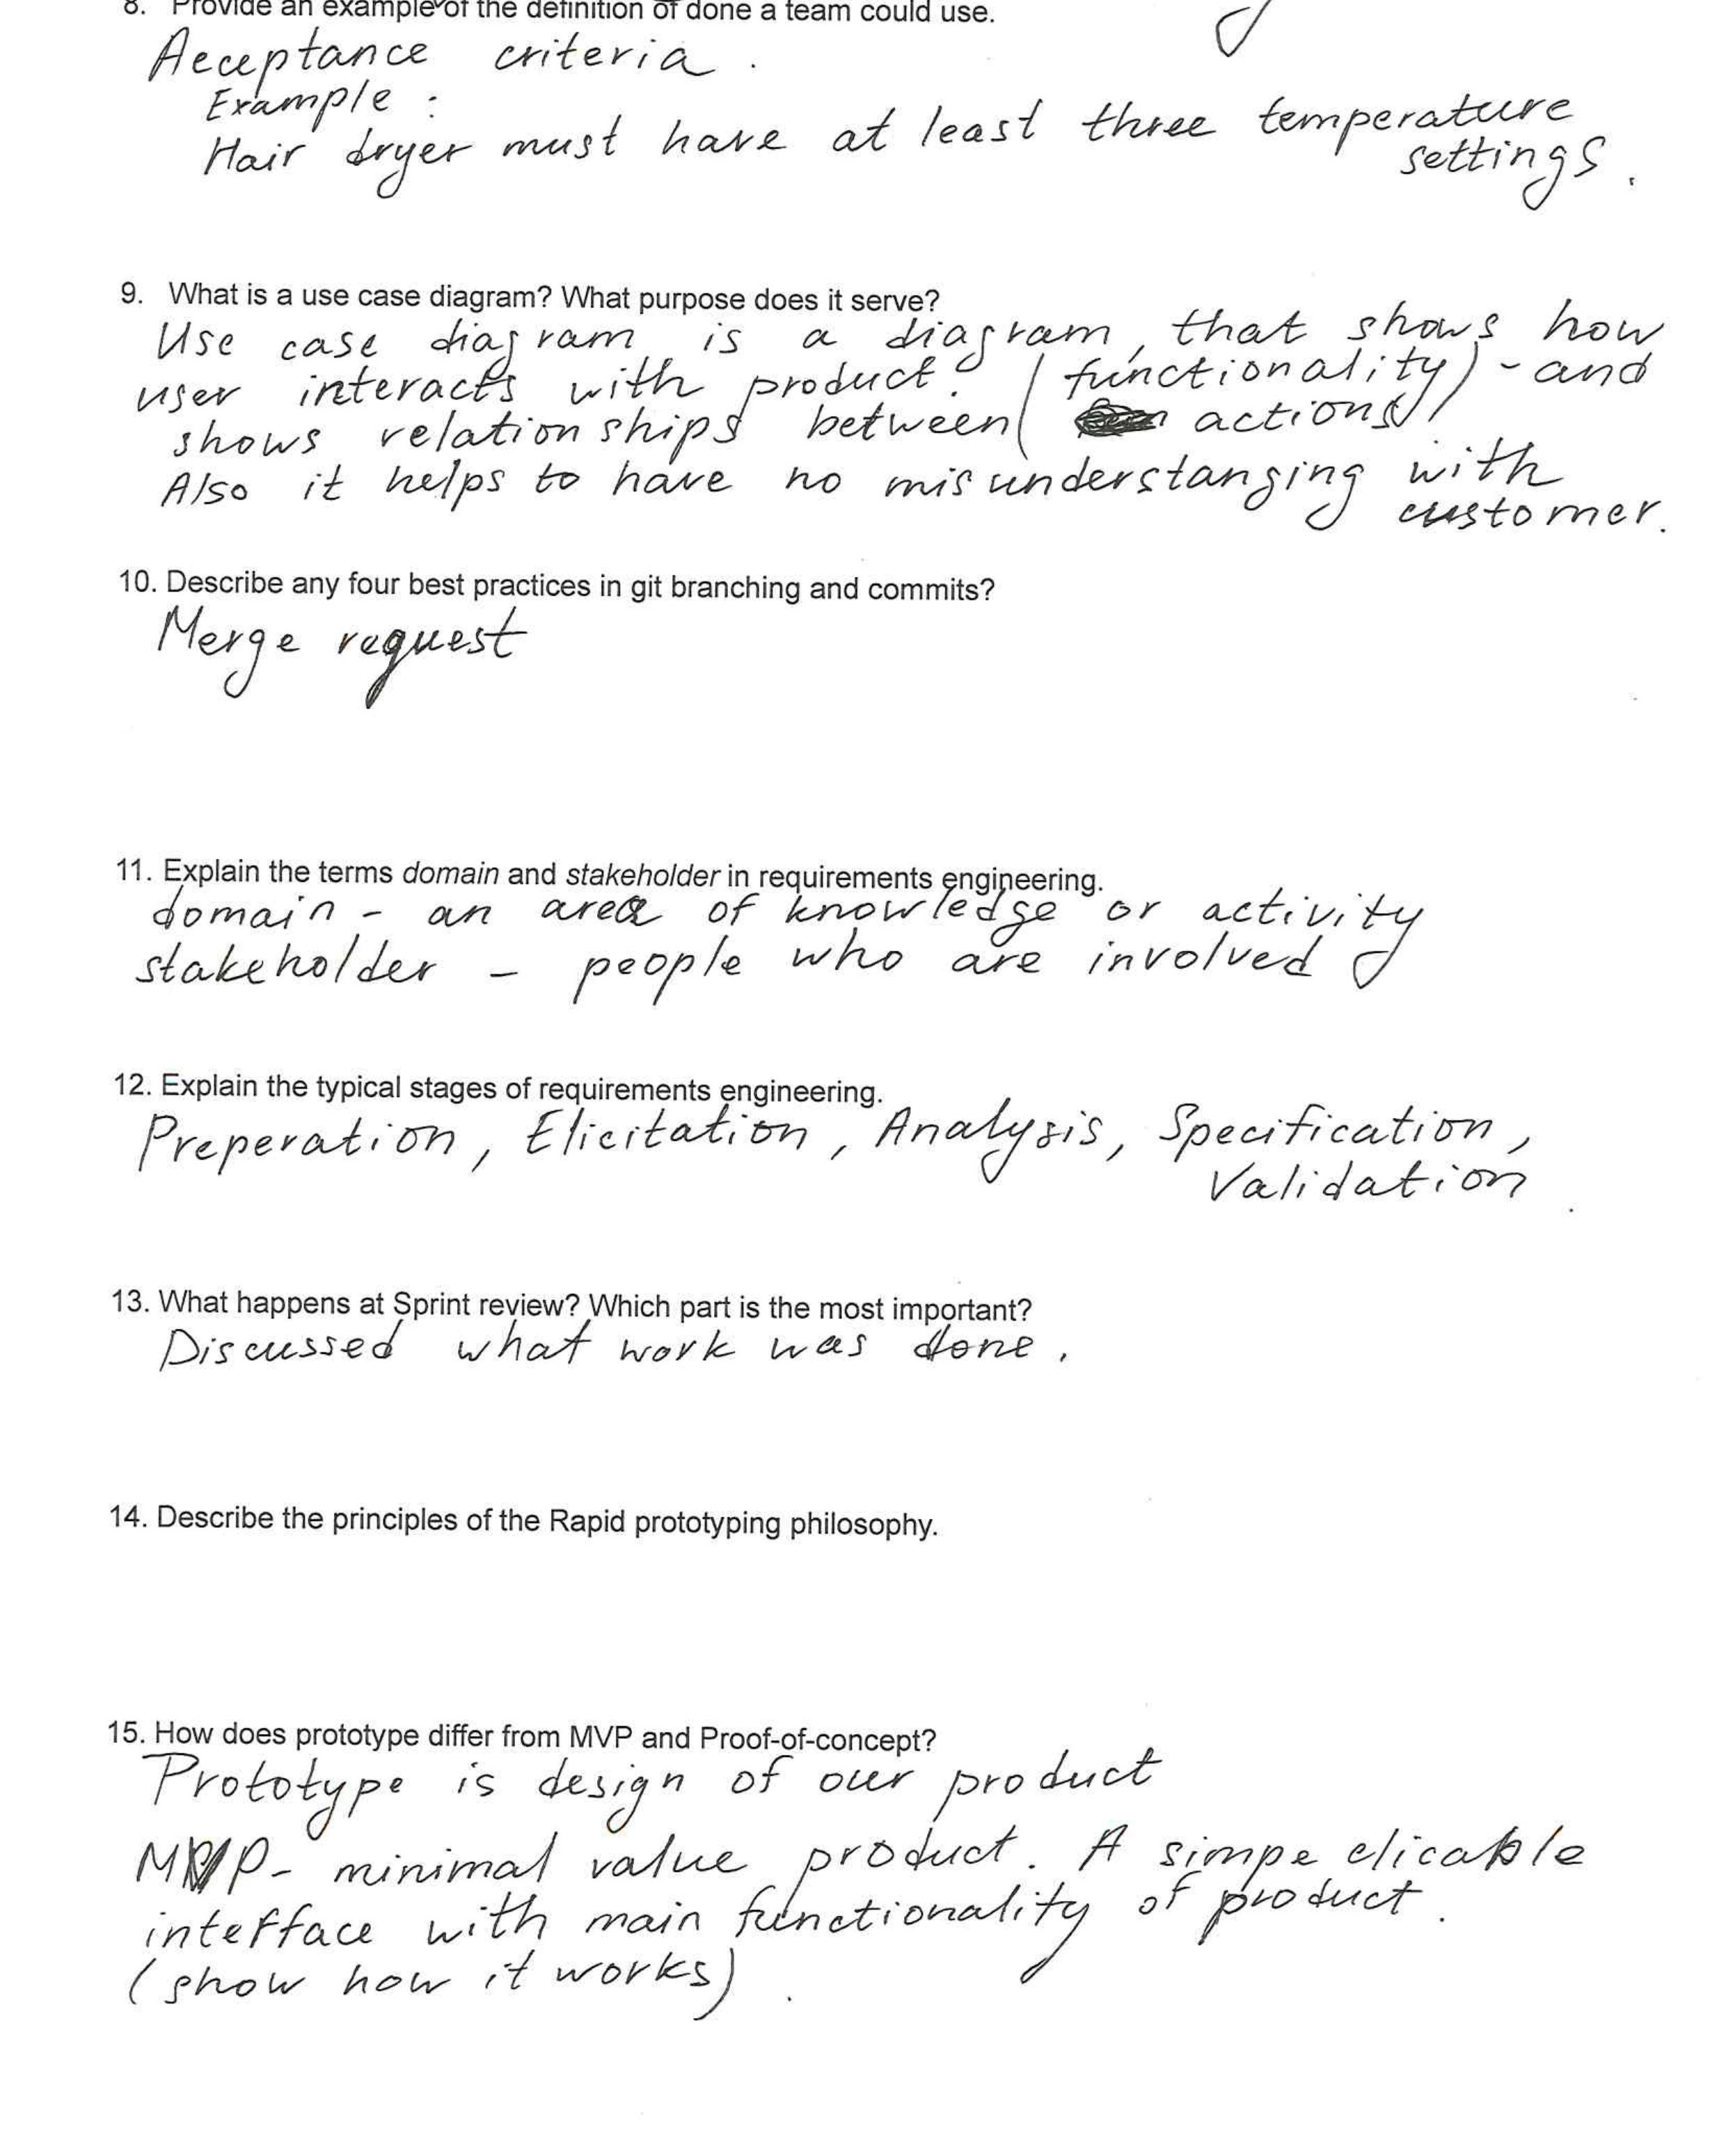 8. Provide an example of the definition of done a team could use.
Acceptance criteria.
Example:
Hair dryer must have at least three temperature
settings.
9. What is a use case diagram? What purpose does it serve?
Use case diagram is a diagram, that shows how
user interacts with product. (functionality) - and
shows relationships between ( actions)
Also it helps to have no misunderstanging with
customer.
10. Describe any four best practices in git branching and commits?
Merge request
11. Explain the terms domain and stakeholder in requirements engineering.
domain - an area of knowledge or activity
stakeholder - people who are involved
12. Explain the typical stages of requirements engineering.
Preperation, Elicitation, Analysis, Specification,
Validation
13. What happens at Sprint review? Which part is the most important?
Discussed what work was done.
14. Describe the principles of the Rapid prototyping philosophy.
15. How does prototype differ from MVP and Proof-of-concept?
Prototype is design of our product
MVP- minimal value product. A simpe clicable
interface with main functionality of product.
(show how it works).